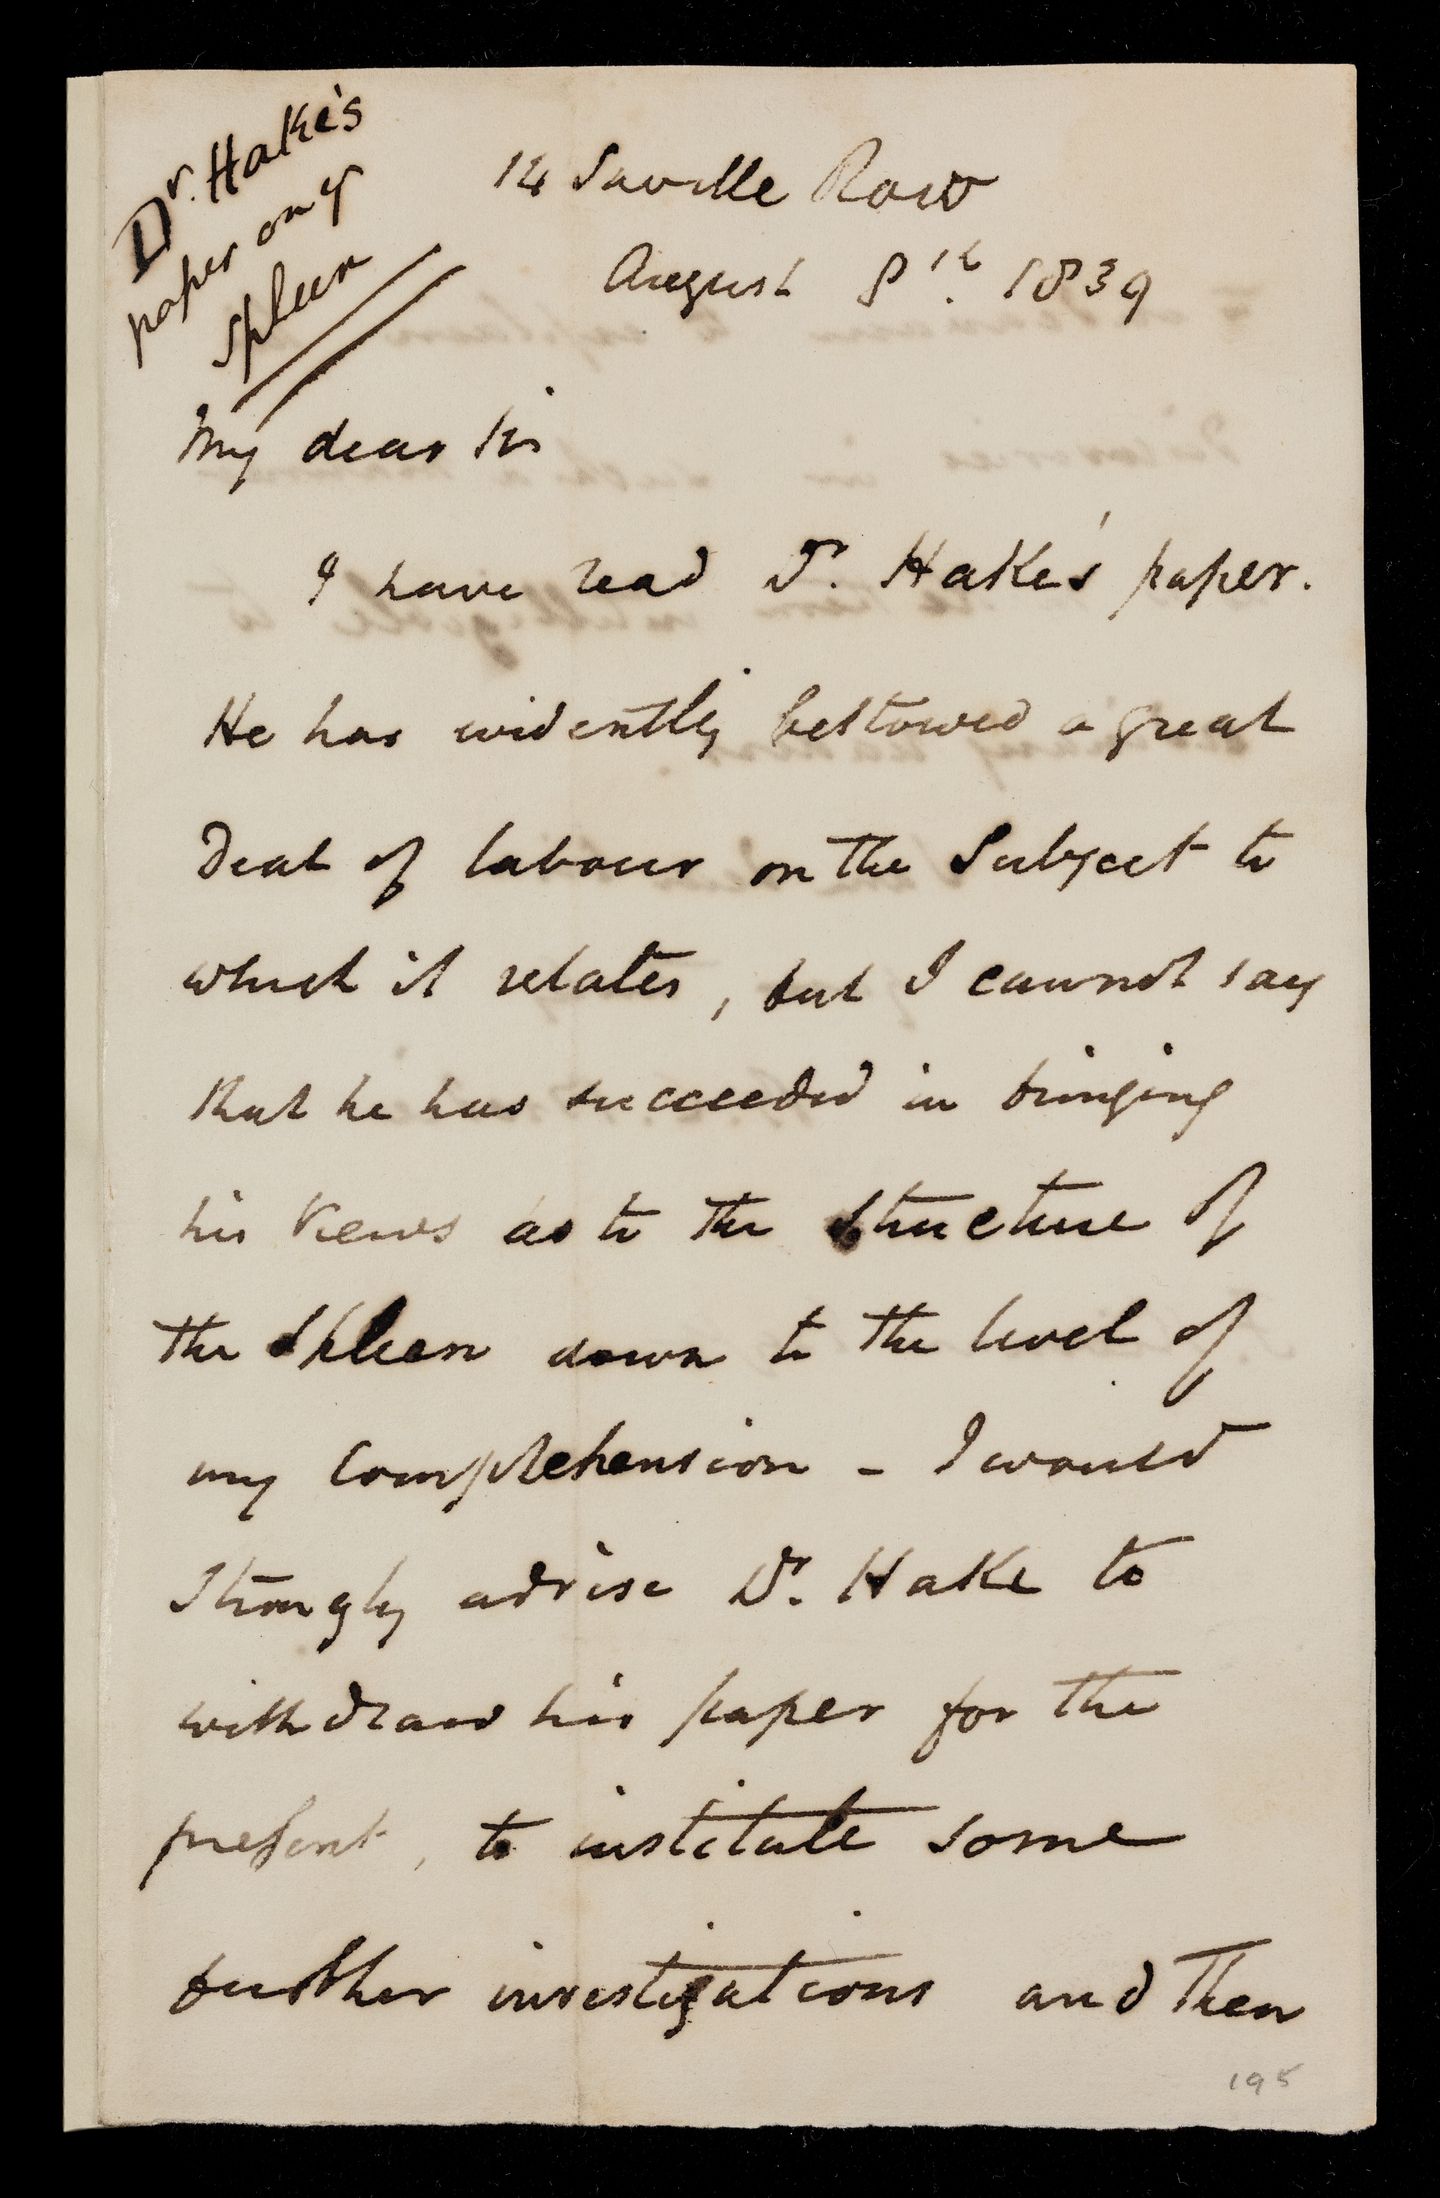 Dr. Hake's
paper on ye
spleen
14 Saville Row
August 8th. 1839
My dear Sir
I have read Dr. Hake's paper.
He has evidently bestowed a great
Deal of labour on the Subject to
which it relates, but I cannot say
that he has succeeded in bringing
his views as to the structure of
the Spleen down to the level of
my Comprehension - I would
Strongly advise Dr. Hake to
withdraw his paper for the
present, to institute some
further investigations and then
195